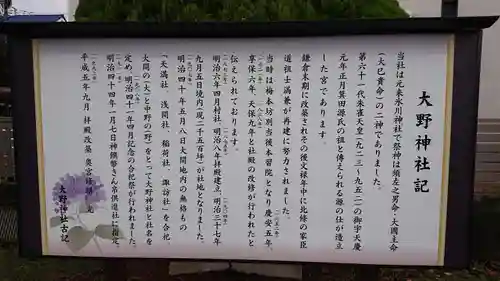 大野神社記
当社は元来氷川神社で祭神は須佐之男命・大国主命
(大己貴命)の二神でありました。
第六十一代朱雀天皇(九二三~九五二)の御宇天慶
元年正月箕田源氏の祖と傳えられる源の仕が造立
した宮であります。
鎌倉末期に改築されその後文禄年中に北條の家臣
道祖士満兼が再建に努力されました。
当時は梅本坊別当後本習院となり慶安五年、
享保六年、天保九年と社殿の改修が行われたと
伝えられております。
明治六年四月村社、明治八年拝殿建立、明治三十七年
九月五日境内(現二千五百坪)が社地となりました。
明治四十年五月八日大間地内の無格もの
「天満社、浅間社、稲荷社、諏訪社」を合祀、
大間の(大)と中野の(野)をとって大野神社と社名を
定め、明治四十一年四月記念の合祀祭が行われました。
明治四十四年一月七日神饌幣さん帛供進社に指定。
平成五年九月 拝殿改築 奥宮修
大野神社古記